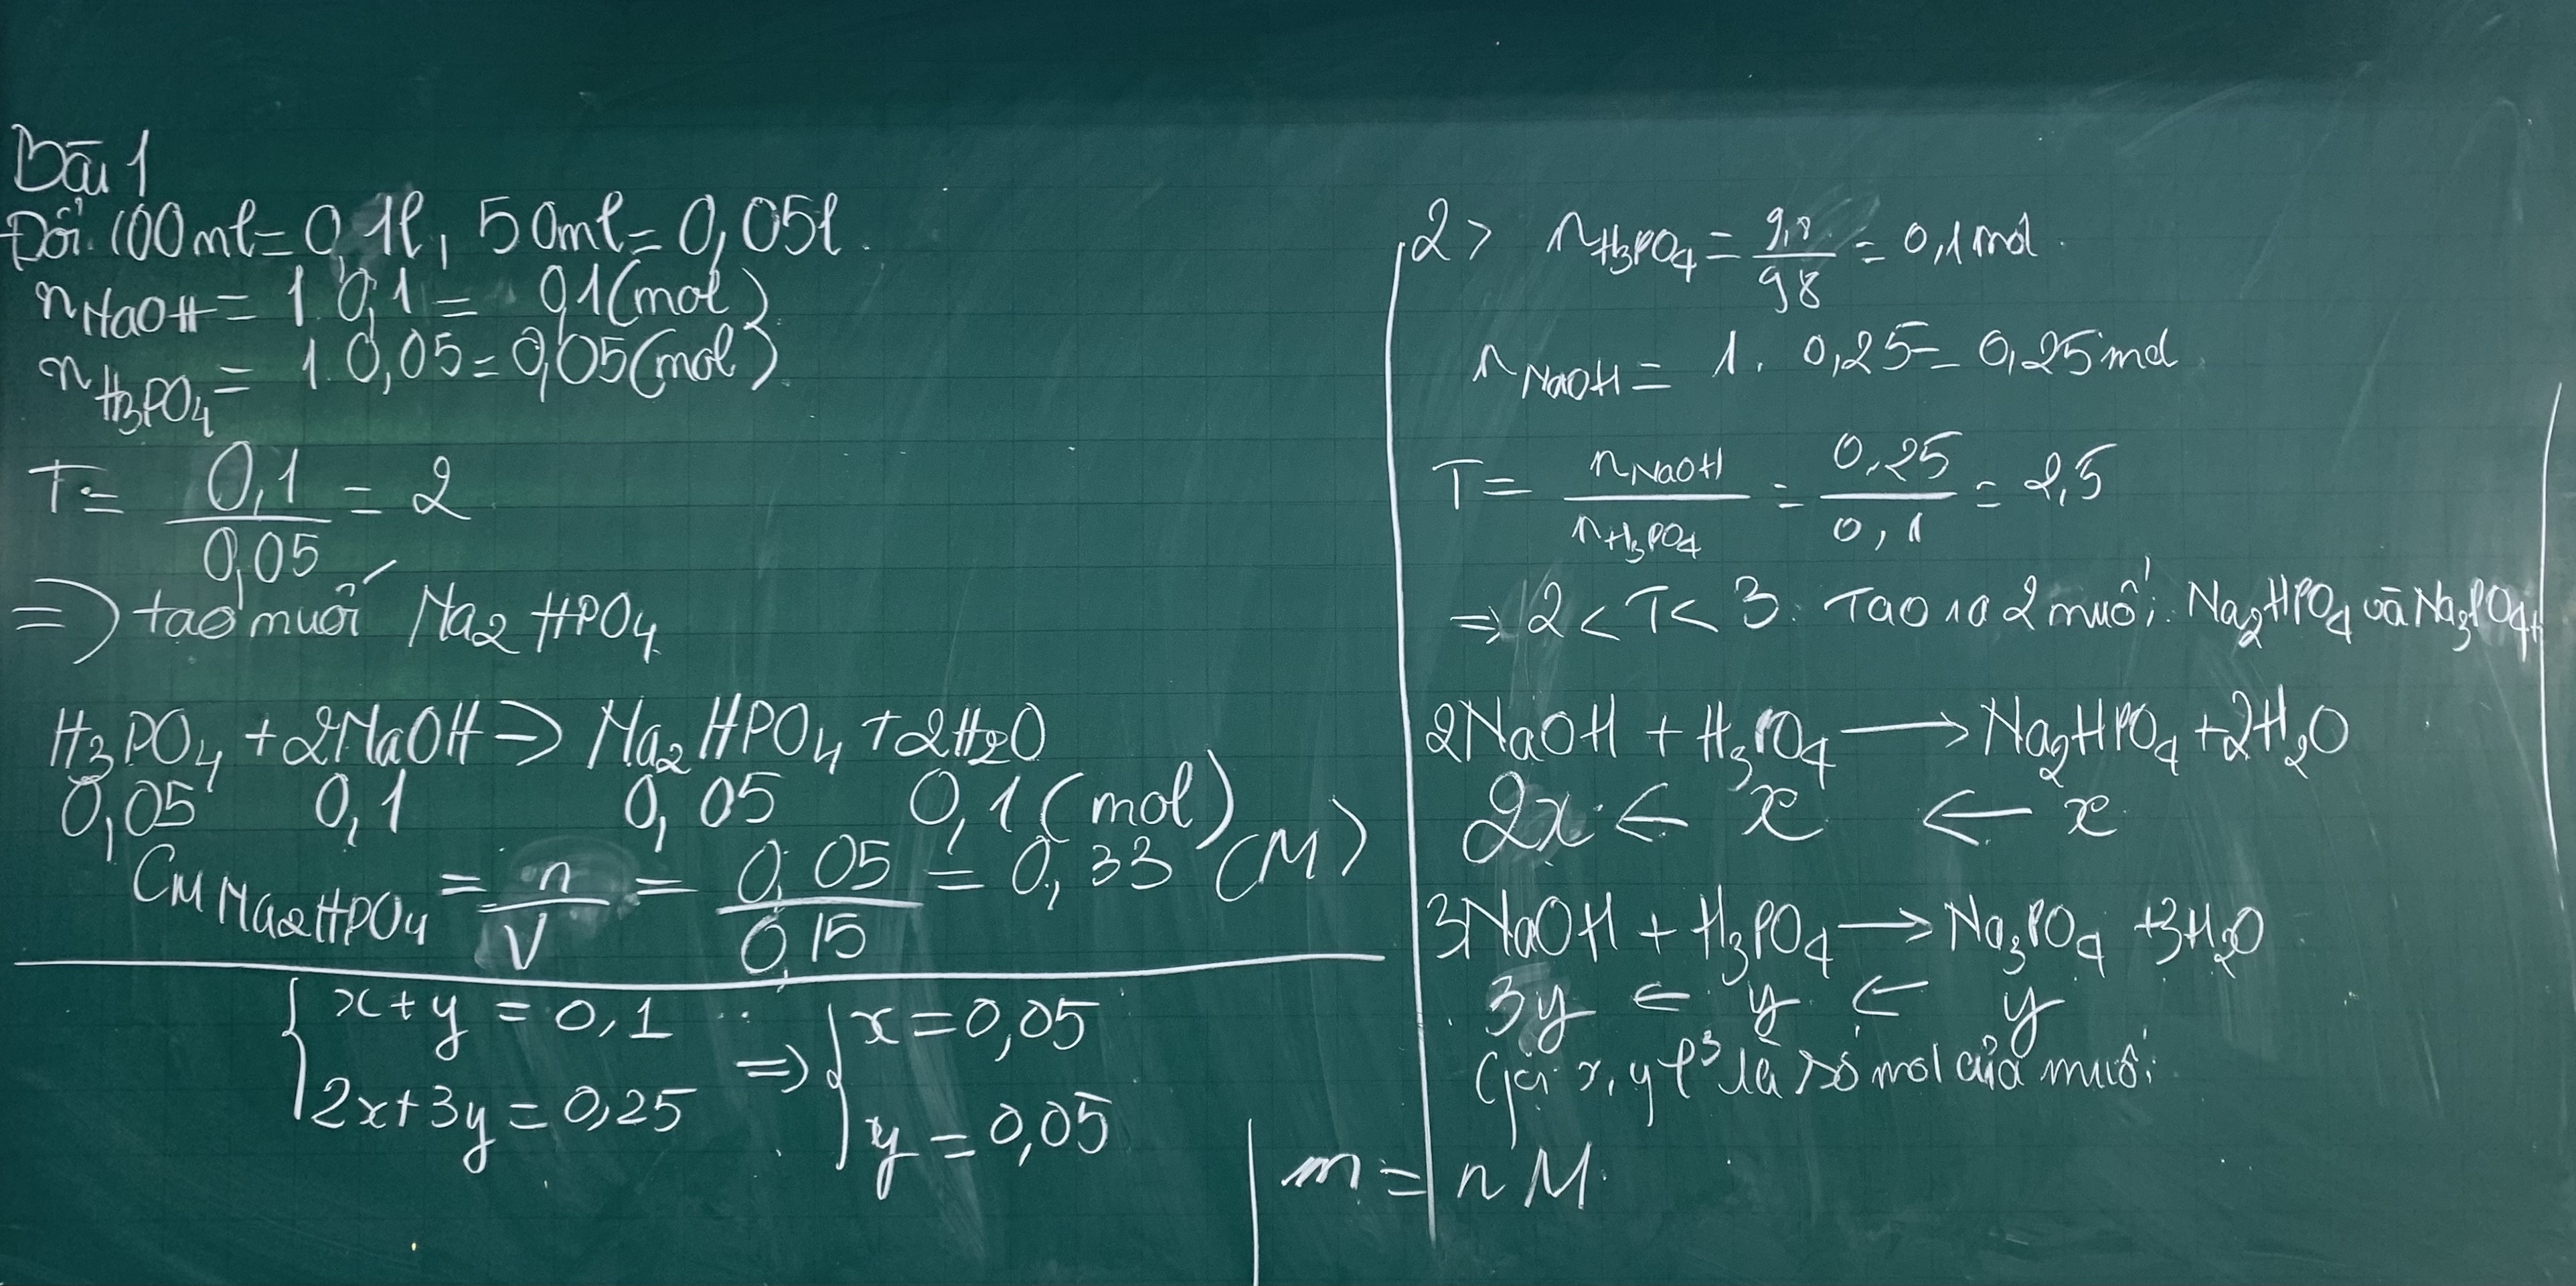 Bài 1
Đổi 100ml = 0,1l, 50ml = 0,05l.
nNaOH = 1.0,1 = 0,1(mol)
nH3PO4 = 1.0,05 = 0,05(mol).
T = 0,1/0,05 = 2
=> tạo muối Na2HPO4
H3PO4 + 2NaOH -> Na2HPO4 + 2H2O
0,05 0,1 0,05 0,1 (mol)
CM Na2HPO4 = n/V = 0,05/0,15 = 0,33 (M)
{ x+y = 0,1 => { x = 0,05
2x+3y = 0,25 y = 0,05
2> nH3PO4 = 9,8/98 = 0,1 mol.
nNaOH = 1. 0,25 = 0,25 mol
T = nNaOH/nH3PO4 = 0,25/0,1 = 2,5
=> 2 < T < 3. Tạo ra 2 muối: Na2HPO4 và Na3PO4
2NaOH + H3PO4 → Na2HPO4 + 2H2O
2x ← x ← x
3NaOH + H3PO4 → Na3PO4 + 3H2O
3y ← y ← y
Gọi x, y là số mol của muối
m = n M.